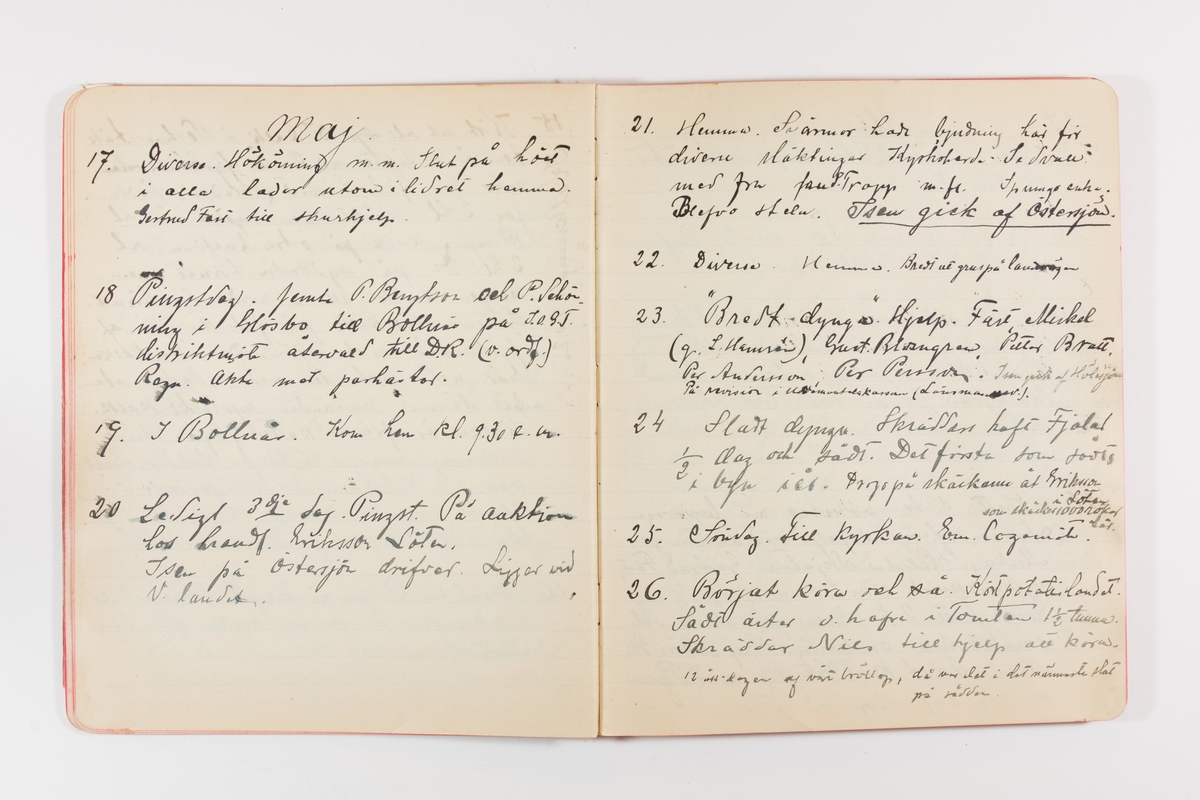 Maj.
17. Diverse. Hökörning m.m. Slut på höet
i alla lador utom i lidret hemma.
Gertrud Färe till skurhjelp.
18 Pingstdag. Jemte P. Bengtson och P. Schö-
ning i Glösbo till Bollnäs på I.O.G.T.
distriktmöte återvald till D.R. (v. ordf.)
Regn. Åkte med parhästar.
19. I Bollnäs. Kom hem kl. 9.30 e. m.
20 Ledigt 3dje dag Pingst. På auktion
hos handl. Eriksson Löten.
Isen på Östersjön drifver. Ligger vid
V. landet.
21. Hemma. Svärmor hade bjudning här för
diverse släktingar Kyrkoherde
med fru Tropp m.fl. enka.
Isen gick af Östersjön.
22. Diverse. Hemma. Bredt ut grus på landsvägen
23. "Bredt dynga". Hjelp. Färe, Mickel
(g. L. Hamrén), Gust. Blomgren, Petter Bratt,
Per Andersson, Per Persson. Isen gick af
På revision i (Länsman).
24 Sladt dynga. Skräddars haft Fjolal
1/2 dag och sådt. Det första som sådts
i byn i år. på skäckarne åt Eriksson
i Löten
som
här.
25. Söndag. Till kyrkan. Em. Logemöte.
26. Börjat köra och så. Kört potatislandet.
Sådt ärter o. hafre i Tomten 1 1/2 tunna.
Skräddar Nils till hjelp att köra.
12 års-dagen af vårt bröllop, då var det i det närmaste slut
på sådden.